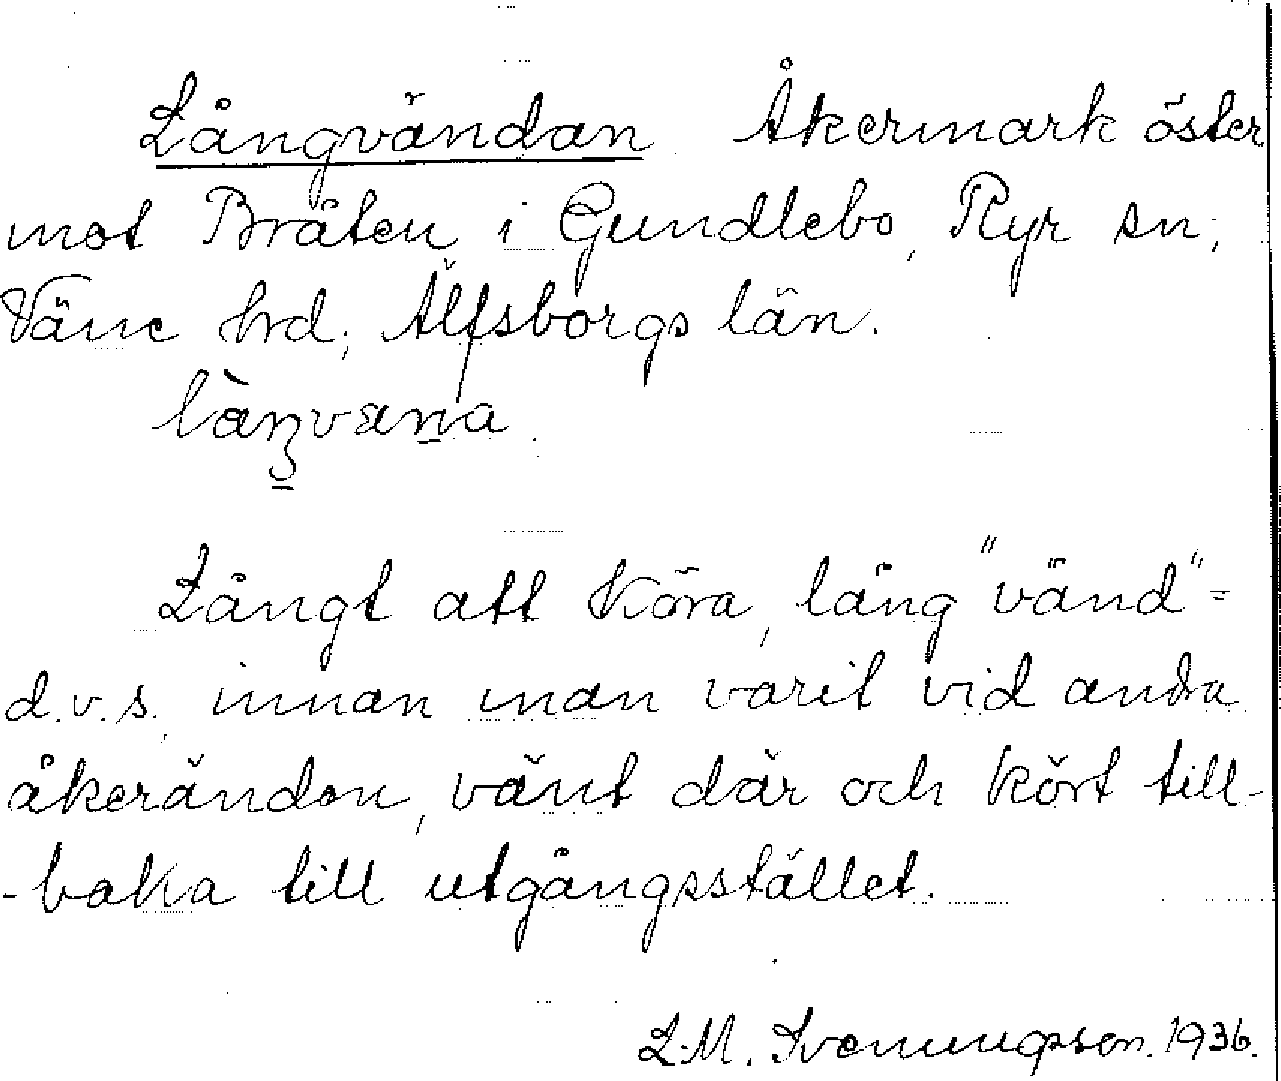 Långvändan Åkermark öster
mot Bråten i Gundlebo, Ryr sn,
Väne hrd, Älfsborgs län.
Långt att köra, lång "vänd"=
d.v.s. innan man varit vid andra
åkerändan, vänt där och kört till-
-baka till utgångsstället.
L.M. Svenungsson. 1936.